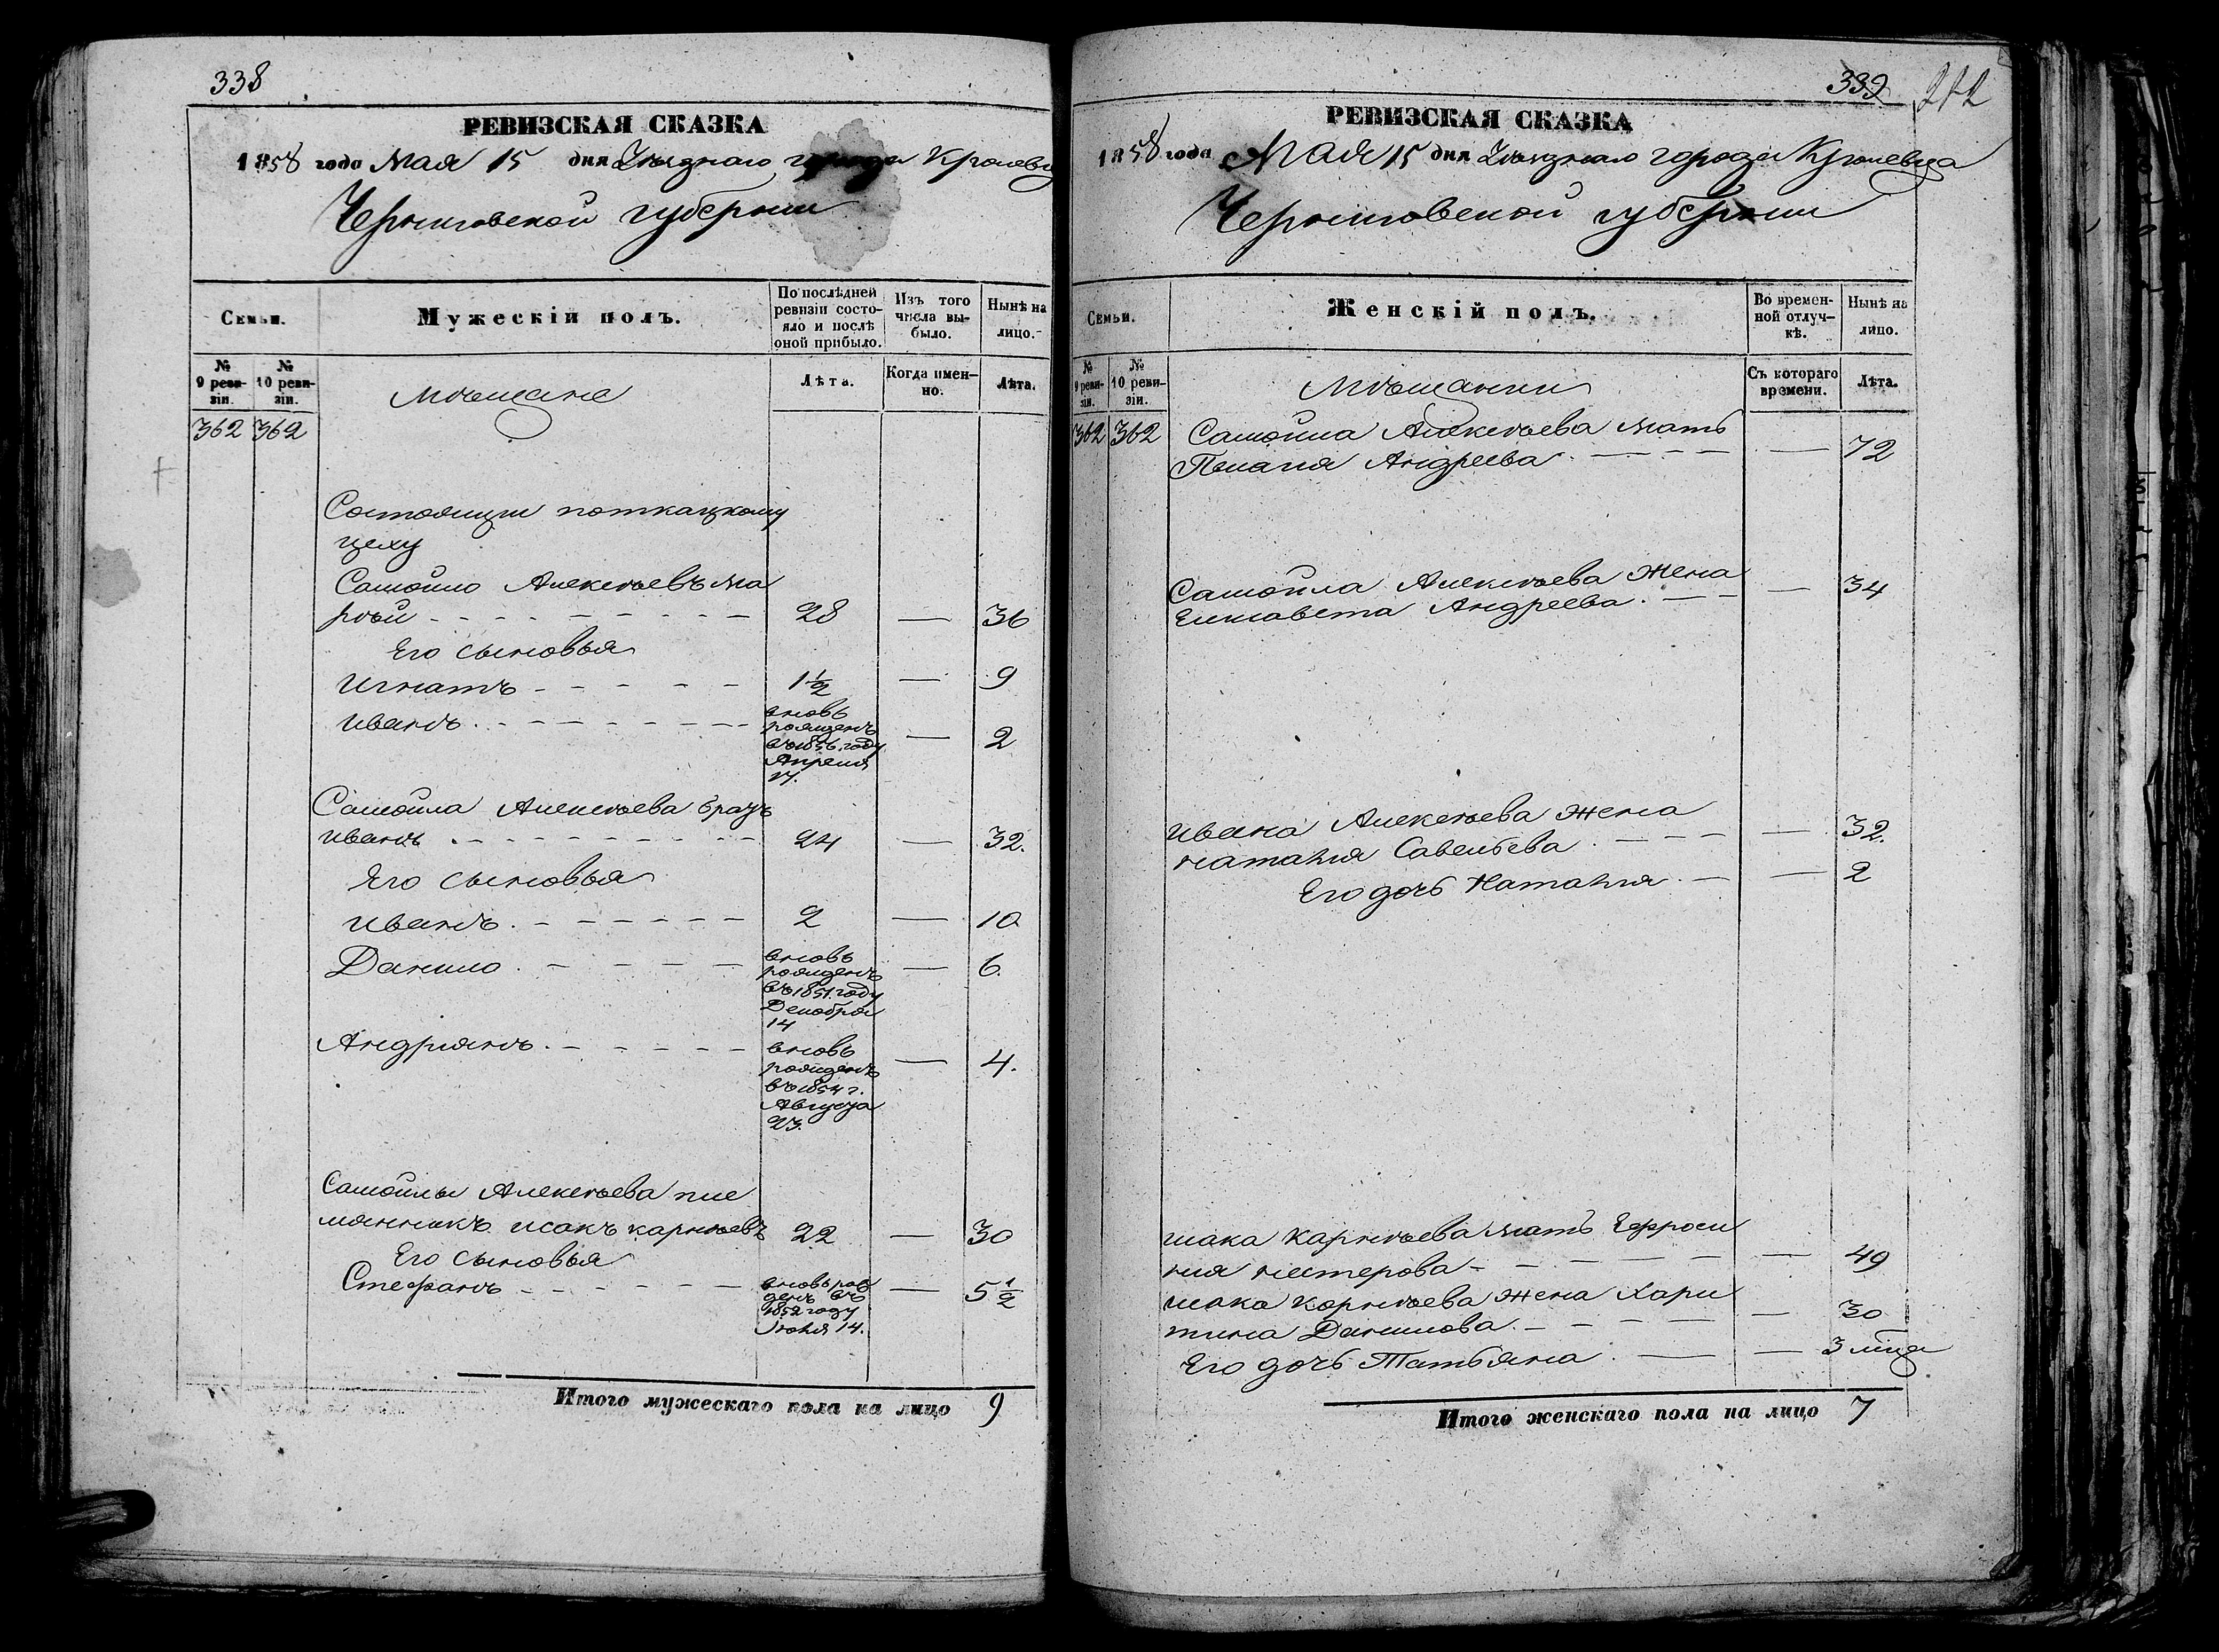 338
РЕВИЗСКАЯ СКАЗКА
1858 года Мая 15 дня Уѣзднаго города Кролевца
Черниговской губернии
Семьи.
Мужескій полъ.
По послѣдней ревизіи состояло и послѣ оной прибыло.
Изъ того числа выбыло.
Нынѣ на лицо.
№ 9 ревизіи.
№ 10 ревизіи.
Мѣщане
Лѣта.
Когда именно.
Лѣта.
362 362
Состоящии поткацкому
цеху
Самойло Алексѣевъ Ма
рѣй 28 — 36
Его сыновья
Игнатъ 1½ — 9
Иванъ вновь рожденъ въ 1856 году Апреля 17. — 2
Самойла Алексѣева братъ
Иванъ 24 — 32.
Его сыновья
Иванъ 2 — 10
Данило вновь рожденъ въ 1851 году Декабря 14 — 6.
Андриянъ вновь рожденъ въ 1854 г. Августа 23. — 4.
Самойлы Алексѣева пле
мянникъ Исакъ Карнѣевъ 22 — 30
Его сыновья
Стефанъ вновь рожденъ въ 1852 году Іюня 14. — 5½
Итого мужескаго пола на лицо 9
339 212
РЕВИЗСКАЯ СКАЗКА
1858 года Мая 15 дня Уѣзднаго города Кролевца
Черниговской губернии
Семьи.
Женскій полъ.
Во временной отлучкѣ.
Нынѣ на лицо.
№ 9 ревизіи.
№ 10 ревизіи.
Мѣщанки
Съ котораго времени.
Лѣта.
362 362
Самойла Алексѣева мать
Пелагия Андреева — 72
Самойла Алексѣева жена
Елисавета Андреева — 34
Ивана Алексѣева жена
Наталия Савельева — 32.
Его дочь Наталия — 2
Исака Карнѣева мать Ефроси
ния Нестерова — 49
Исака Карнѣева жена Хари
тина Данилова — 30
Его дочь Татьяна — 3 мѣца
Итого женскаго пола на лицо 7